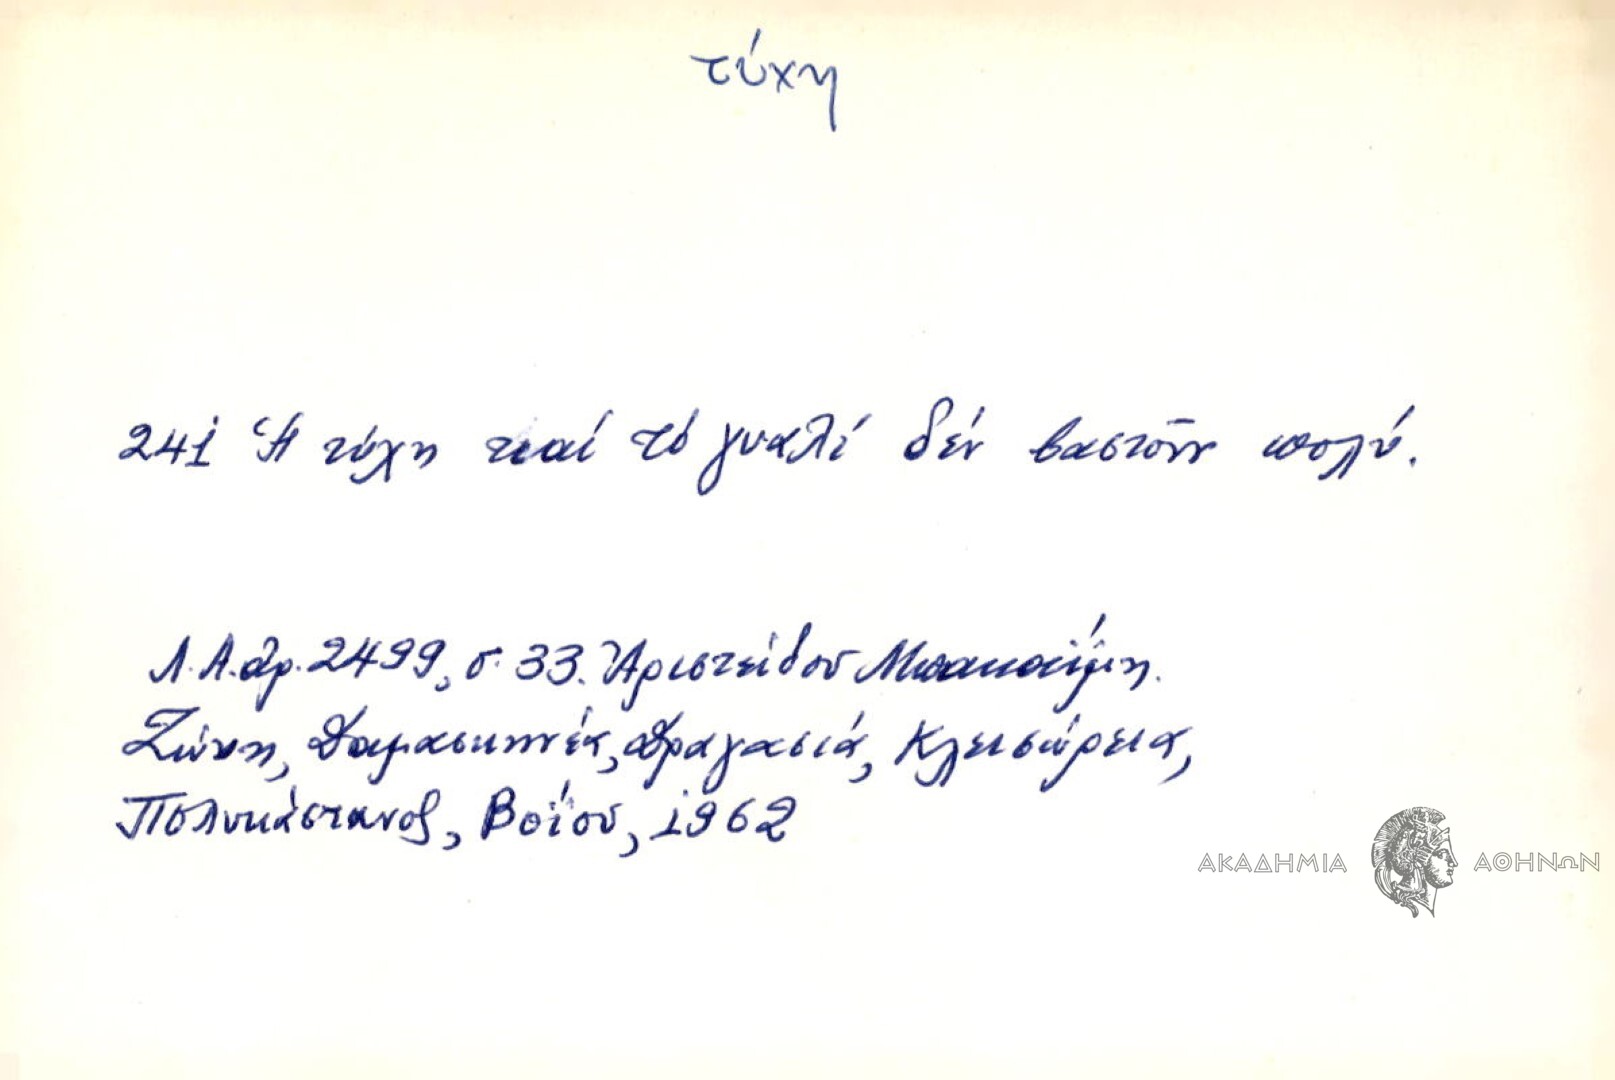 τύχη
241 Ἡ τύχη καί τό γυαλί δέν βαστοῦν πολύ.
Λ.Α. ἀρ. 2499, σ. 33. Ἀριστείδου
Ζώνη, Δαμασκηνέα, Δραγασιά, Κλεισώρεια,
Πολυκάστανον, Βοΐου, 1962
ΑΚΑΔΗΜΙΑ ΑΘΗΝΩΝ